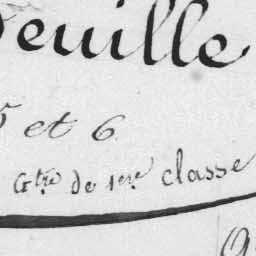 feuille
5 et 6
Gtre de 1ere classe